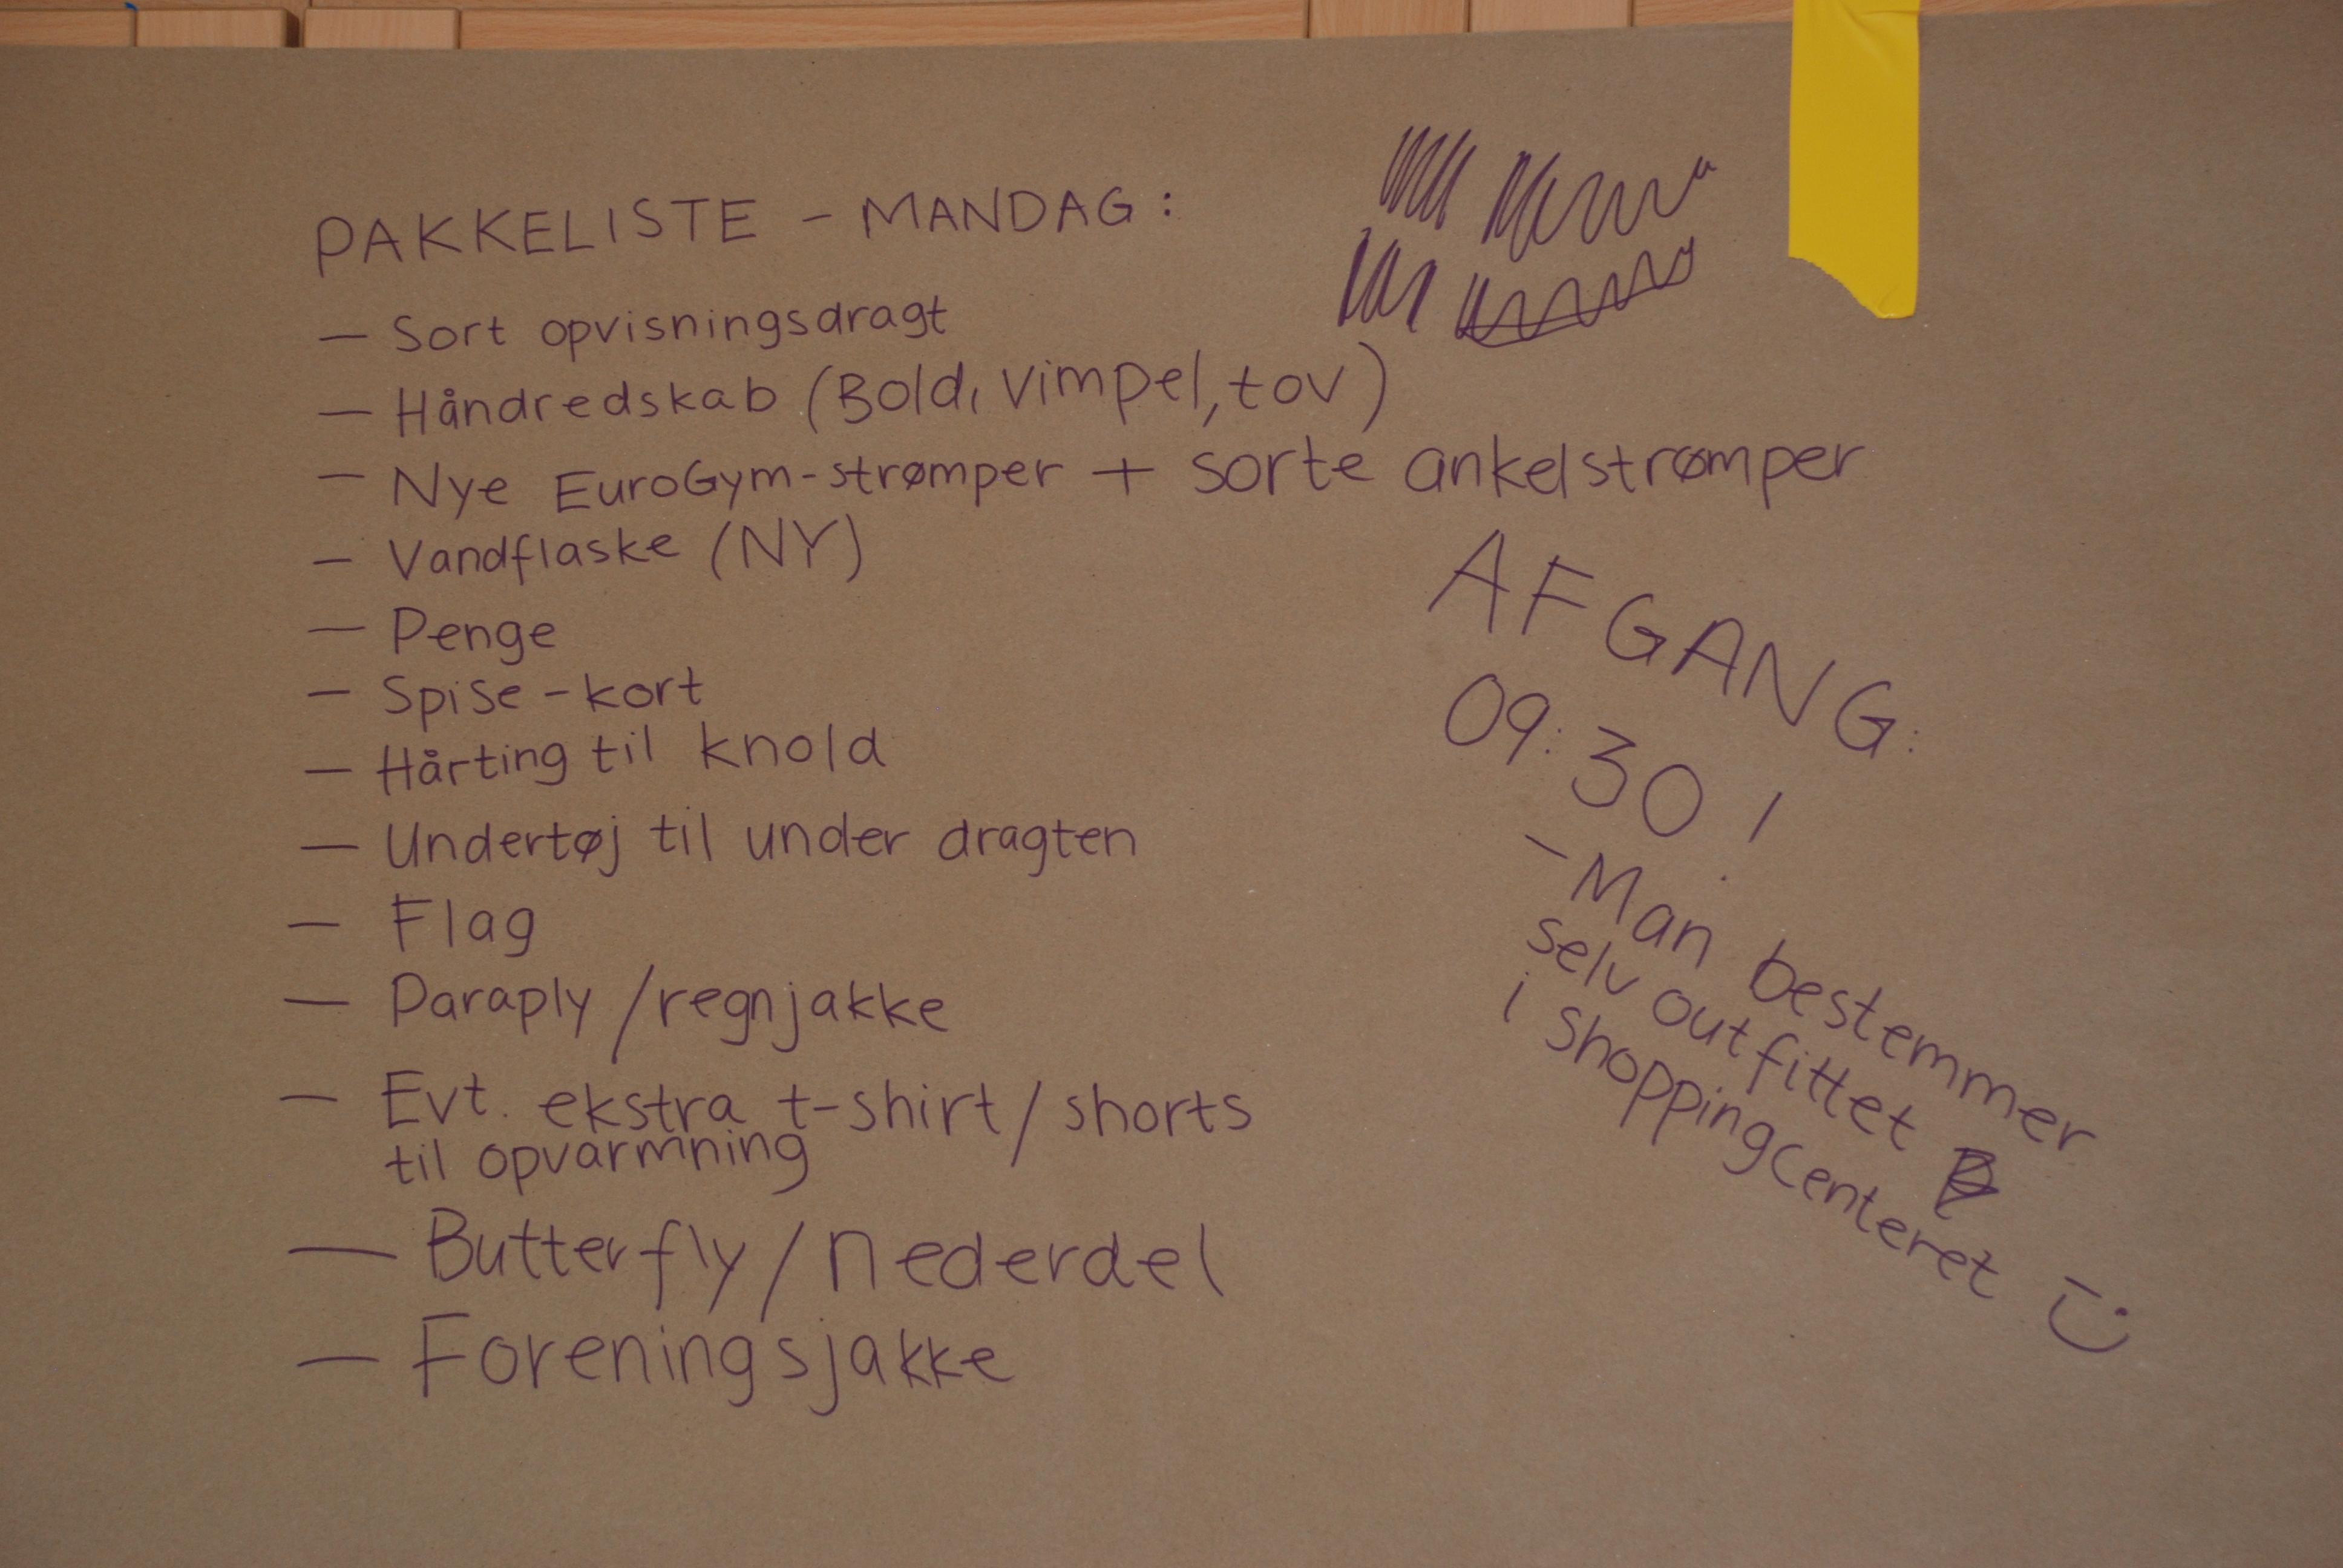 PAKKELISTE - MANDAG:
- Sort opvisningsdragt
- Håndredskab (Bold, vimpel, tov)
- Nye EuroGym-strømper + sorte ankelstrømper
- Vandflaske (NY)
- Penge
- Spise-kort
- Hårting til knold
- Undertøj til under dragten
- Flag
- Paraply/regnjakke
- Evt. ekstra t-shirt/shorts
til opvarmning
- Butterfly/nederdel
- Foreningsjakke
AFGANG:
09:30!
- Man bestemmer
selv outfittet
i shoppingcenteret